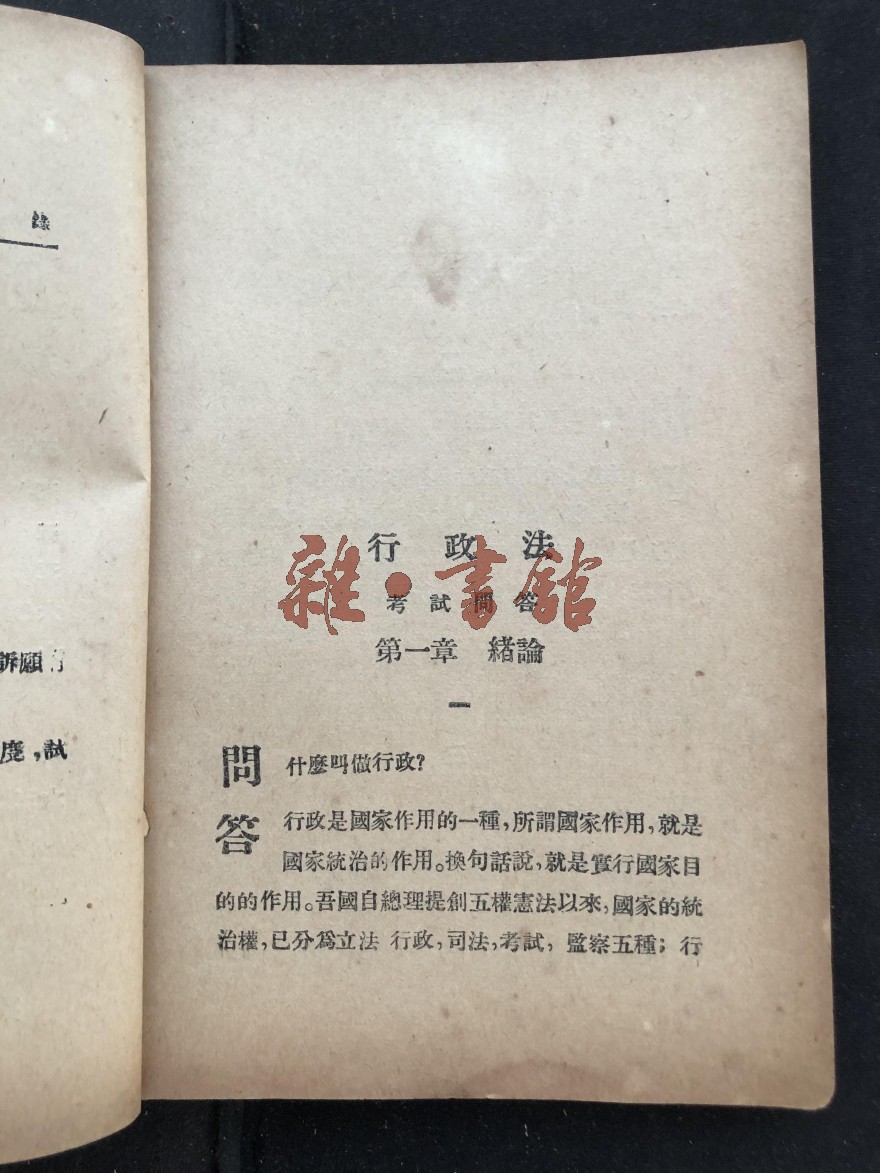 錄
訴願
度，試
雜·書館
行政法
考試問答
第一章 緒論
一
問 什麼叫做行政？
答 行政是國家作用的一種，所謂國家作用，就是
國家統治的作用。換句話說，就是實行國家目
的的作用。吾國自總理提創五權憲法以來，國家的統
治權，已分爲立法 行政，司法，考試，監察五種；行